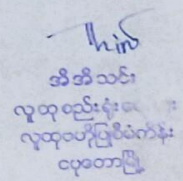 အိအိသင်း
လူထုစည်းရုံးရေး
လူထုဗဟိုပြုစီမံကိန်း
ငပုတောမြို့